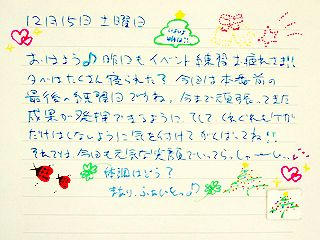 12月15日 土曜日
いよいよ
明日!!
おはよう♪ 昨日もイベント練習お疲れさま!!!
夕べはたくさん寝られた? 今日は本番前の
最後の練習日ですね。今まで頑張ってきた
成果が発揮できるように、そして くれぐれもケガ
だけはしないように気を付けてがんばってね!!
それでは、今日も元気な笑顔でいってらっしゃーい♪
体調はどう?
ふぁいとっ♪